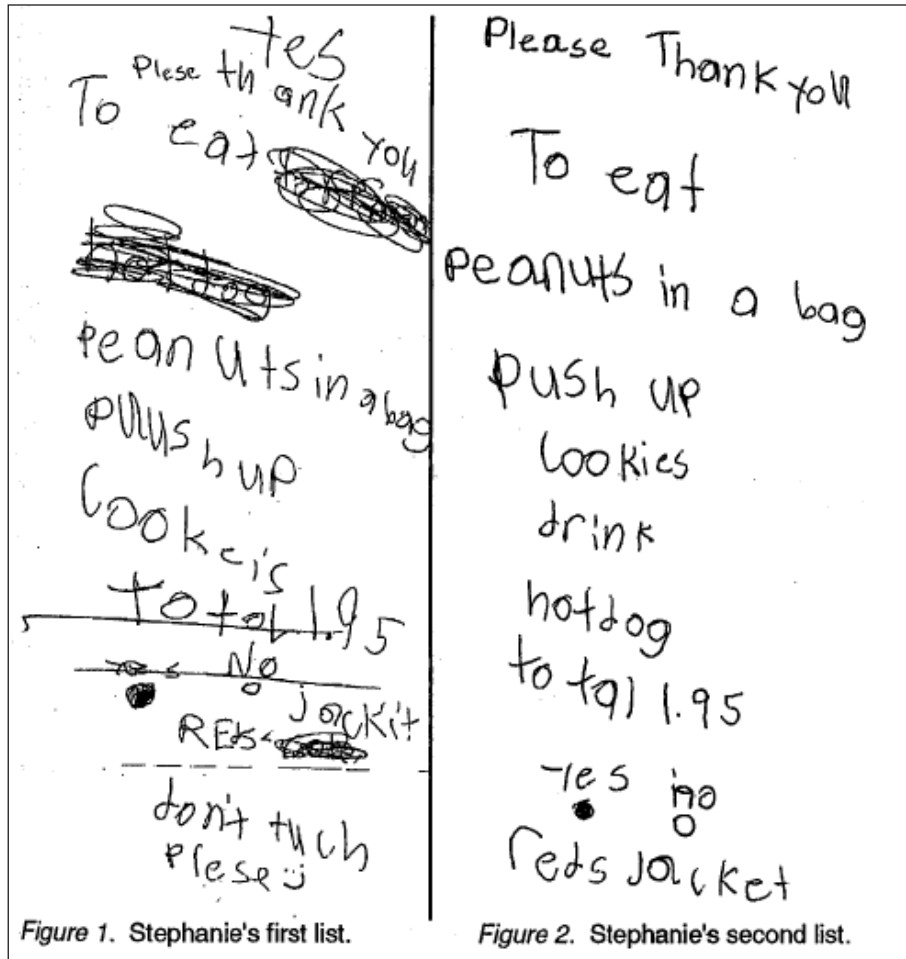 Yes
Plese thank you
To eat
hotdog
peanuts in a bag
puush up
Cookeis
Total 1.95
yes No
REds jackit
don't tuch
plese
Figure 1. Stephanie's first list.
Please Thank you
To eat
peanuts in a bag
push up
Cookies
drink
hotdog
total 1.95
Yes no
reds jacket
Figure 2. Stephanie's second list.